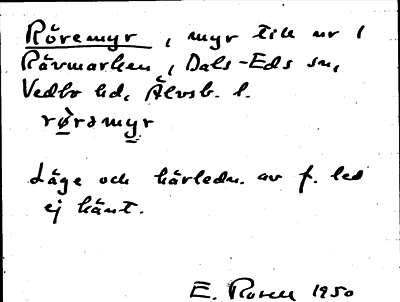 Röremyr, myr till nr 1
Rävmarken, Dals-Eds sn,
Vedbo hd, Älvsb. l.
rø̀rəmyr
Läge och härledn. av f. led
ej känt.
E. Rosell 1950